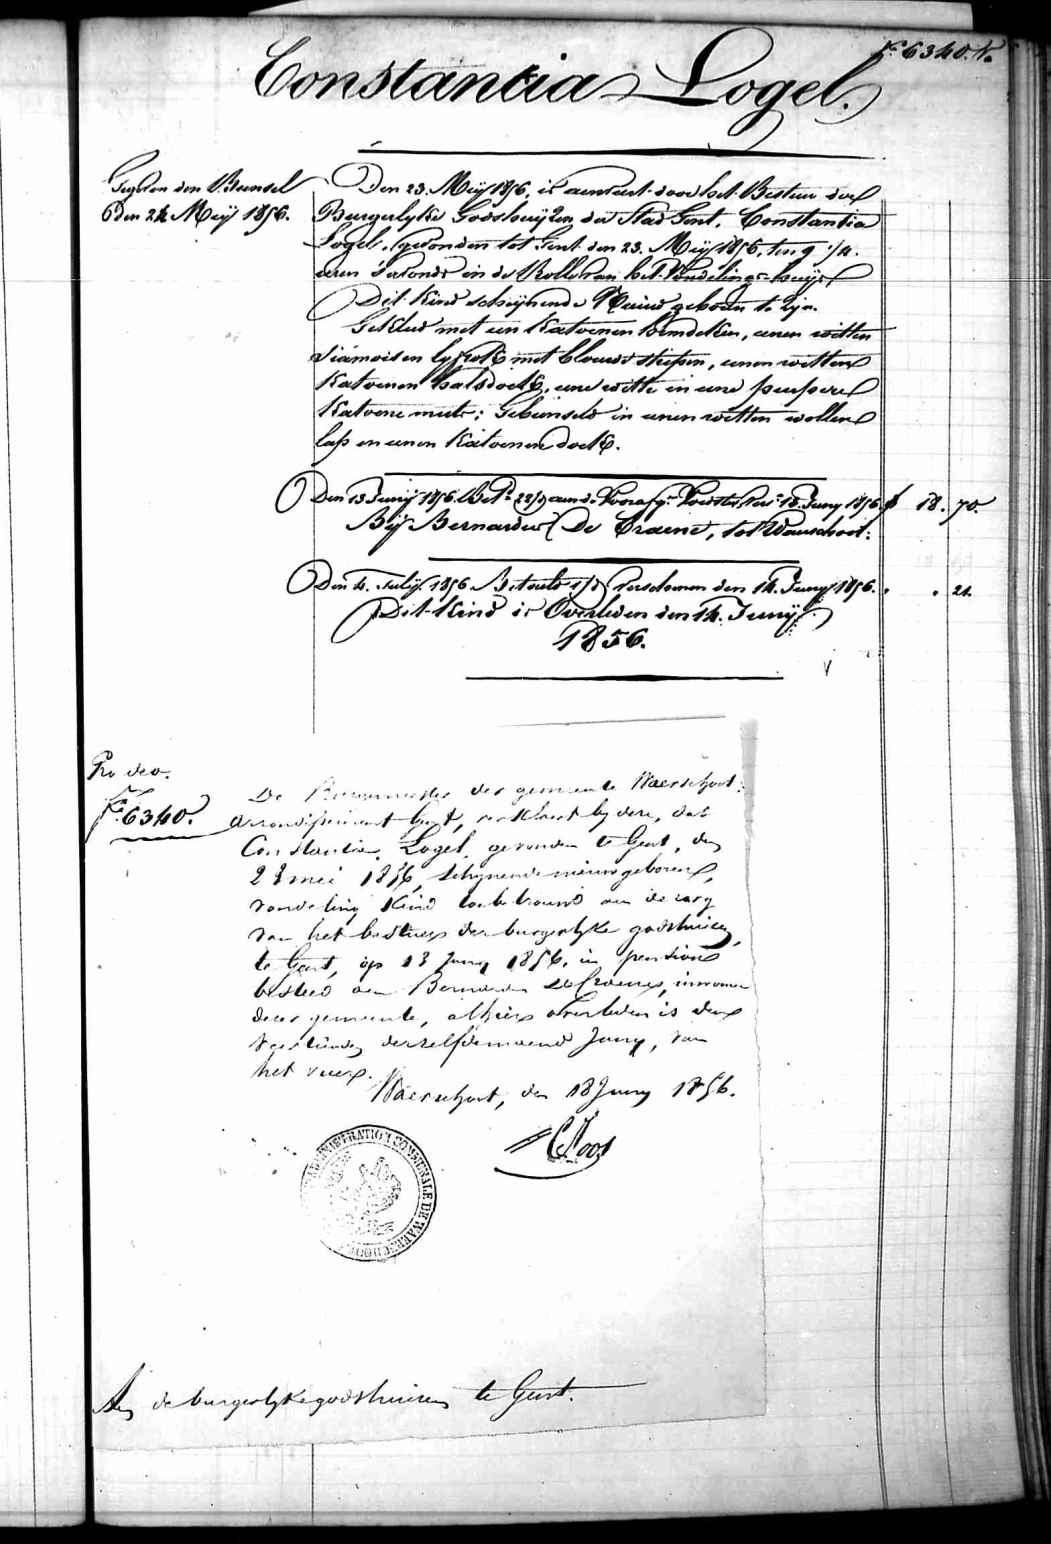 Nº 6340. N.
Constantia Logel.
den Bunsel
den 24 Meij 1856.
Den 23. Meij 1856. is aenveert door het Bestier der
Burgerlijke Godshuijzen der Stad Gent, Constantia
Logel, gevonden tot Gent den 23. Meij 1856, ten 9 1/4.
uren s'avonds in de Rolle van het Vondelingshuijs
Dit kind schijnende Nieuw geboren te zijn.
Gekleed met een Katoenen hemdeken, eenen witten
siamoisen met blauwe strepen, eenen witten
Katoenen halsdoek, eene witte en eene purpere
Katoene muts; Gebunseld in eenen witten wollen
lap en eenen Katoenen doek.
Den 13 Junij 1856. 18 Juny 1856. f 18. 70.
Bij Bernardus De Craene, tot Waerschoot.
Den 4. Julij 1856 Betaeld verschenen den 14. Juny 1856. " " 21.
Dit Kind is Overleden den 14. Junij
1856.
Pro deo.
Nº 6340.
De Burgemeester der gemeente Waerschoot,
arrondissement Gent, verklaert by deze, dat
Constantia Logel, gevonden te Gent, den
23 mei 1856, schynende nieuwgeboren,
vondeling Kind toebetrouwd aen de zorg
van het bestuer der burgerlyke godshuizen
te Gent, op 13 Juny 1856, in pensioen
besteed aen Bernardus De Craene, inwoner
dezer gemeente, alhier overleden is den
veertienden derzelfde maend Juny, van
het jaer.
Waerschoot, den 18 Juny 1856.
ADMINISTRATION COMMUNALE DE WAERSCHOOT
Aen de burgerlyke godshuizen te Gent.